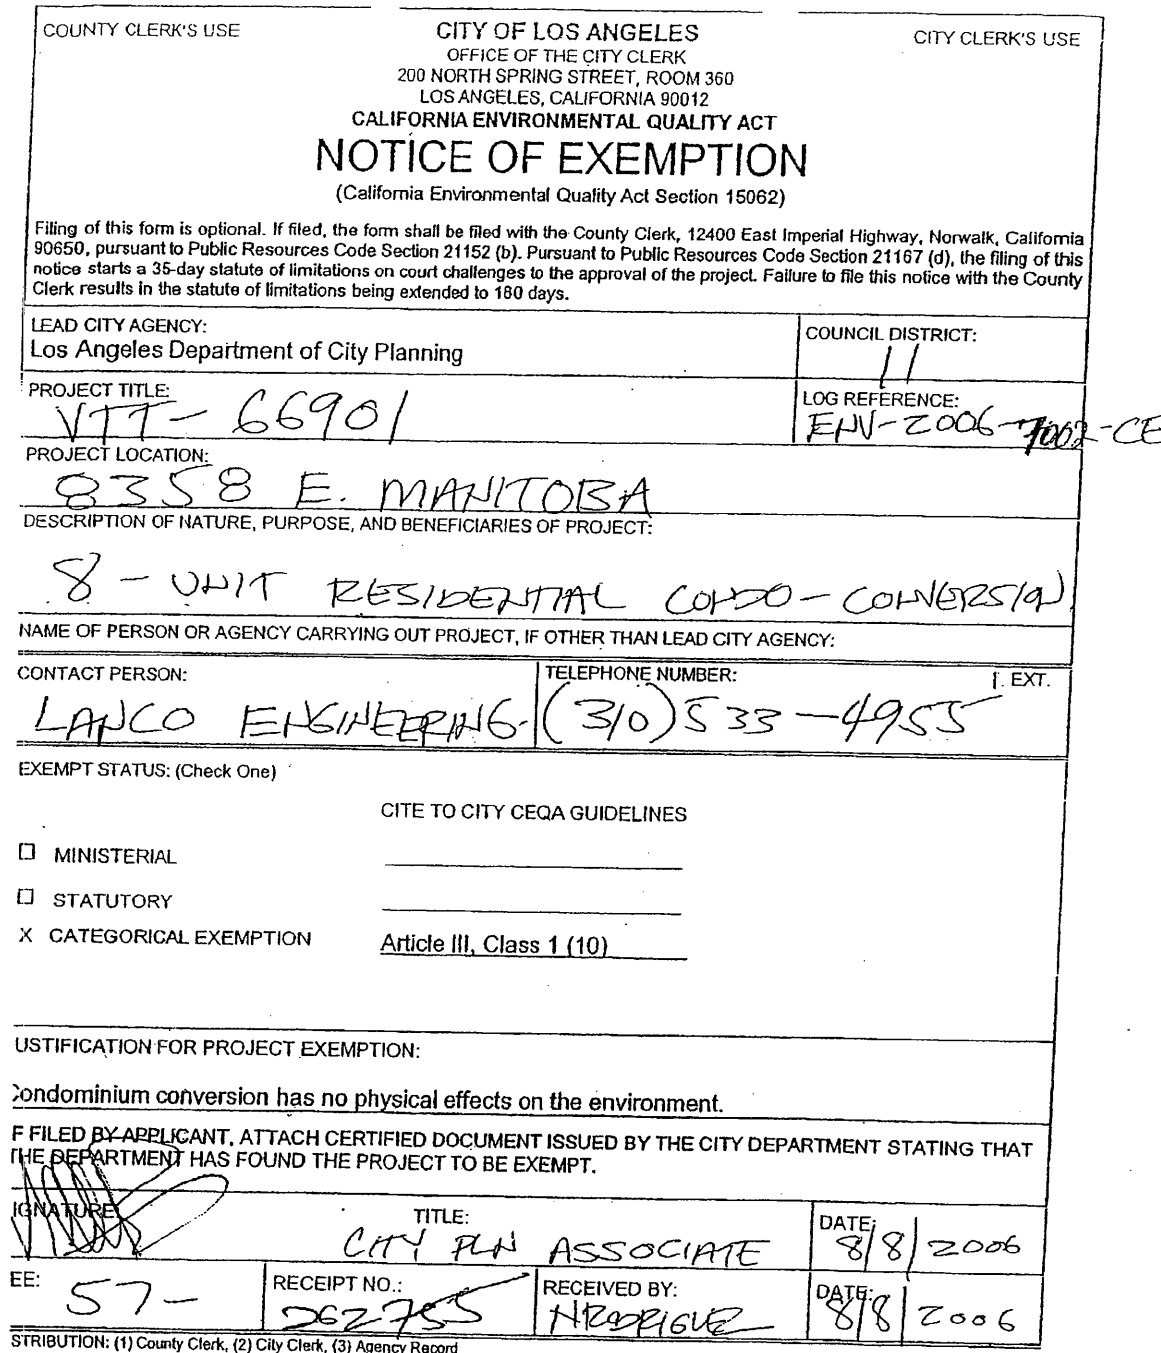 COUNTY CLERK'S USE
CITY OF LOS ANGELES
CITY CLERK'S USE
OFFICE OF THE CITY CLERK
200 NORTH SPRING STREET, ROOM 360
LOS ANGELES, CALIFORNIA 90012
CALIFORNIA ENVIRONMENTAL QUALITY ACT
NOTICE OF EXEMPTION
(California Environmental Quality Act Section 15062)
Filing of this form is optional. If filed, the form shall be filed with the County Clerk, 12400 East Imperial Highway, Norwalk, California
90650, pursuant to Public Resources Code Section 21152 (b). Pursuant to Public Resources Code Section 21167 (d), the filing of this
notice starts a 35-day statute of limitations on court challenges to the approval of the project. Failure to file this notice with the County
Clerk results in the statute of limitations being extended to 180 days.
LEAD CITY AGENCY:
Los Angeles Department of City Planning
COUNCIL DISTRICT:
11
PROJECT TITLE:
VTT- 66901
LOG REFERENCE:
ENV-2006-7002-CE
PROJECT LOCATION:
8358 E. MANITOBA
DESCRIPTION OF NATURE, PURPOSE, AND BENEFICIARIES OF PROJECT:
8 - UNIT RESIDENTIAL CONDO-CONVERSION
NAME OF PERSON OR AGENCY CARRYING OUT PROJECT, IF OTHER THAN LEAD CITY AGENCY:
CONTACT PERSON:
LANCO ENGINEERING.
TELEPHONE NUMBER:
EXT.
(310)533-4955
EXEMPT STATUS: (Check One)
CITE TO CITY CEQA GUIDELINES
☐ MINISTERIAL
☐ STATUTORY
X CATEGORICAL EXEMPTION Article III, Class 1 (10)
USTIFICATION FOR PROJECT EXEMPTION:
Condominium conversion has no physical effects on the environment.
F FILED BY APPLICANT, ATTACH CERTIFIED DOCUMENT ISSUED BY THE CITY DEPARTMENT STATING THAT
THE DEPARTMENT HAS FOUND THE PROJECT TO BE EXEMPT.
IGNATURE
TITLE:
CITY PLN ASSOCIATE
DATE:
8/8/2006
EE:
57-
RECEIPT NO.:
262755
RECEIVED BY:
NRODRIGUEZ
DATE:
8/8/2006
STRIBUTION: (1) County Clerk, (2) City Clerk, (3) Agency Record